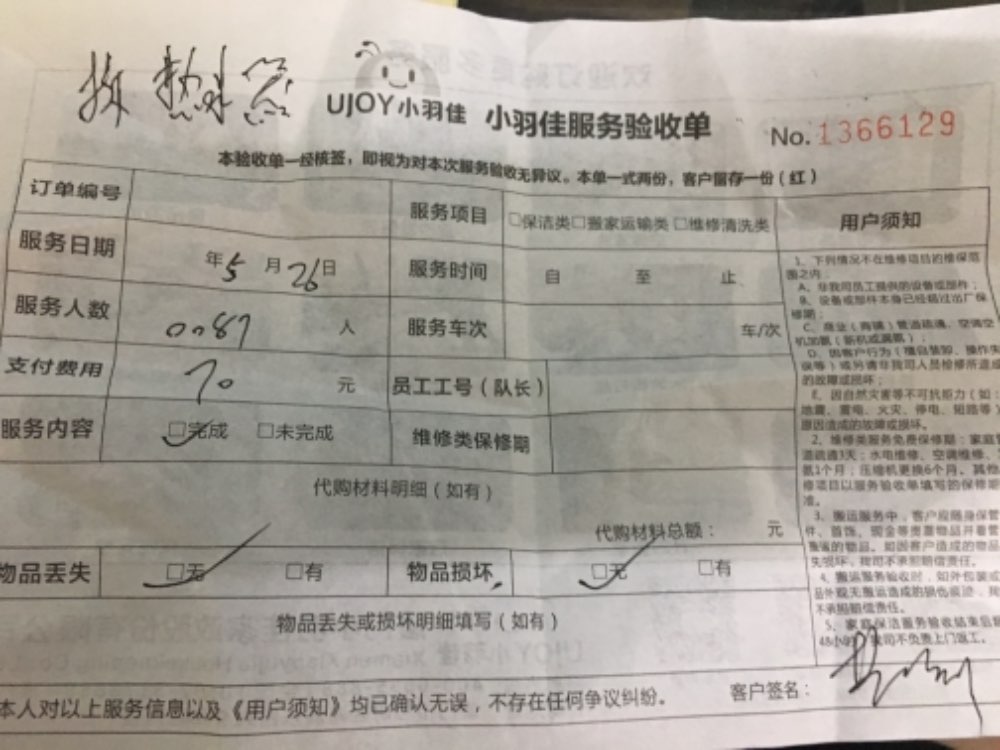 拆热水器
UJOY小羽佳 小羽佳服务验收单 No.1366129
本验收单一经核签，即视为对本次服务验收无异议。本单一式两份，客户留存一份（红）
订单编号 服务项目 □保洁类□搬家运输类□维修清洗类
服务日期 年5月26日 服务时间 自 至 止
服务人数 0087 人 服务车次 年/次
支付费用 70 元 员工工号（队长）
服务内容 □完成 □未完成 维修类保修期
代购材料明细（如有）
代购材料总额： 元
物品丢失 □无 □有 物品损坏 □无 □有
物品丢失或损坏明细填写（如有）
本人对以上服务信息以及《用户须知》均已确认无误，不存在任何争议纠纷。 客户签名：
用户须知
1、下列情况不在维修项目的维保范
围之内：
A、非我司员工提供的设备或部件；
B、设备或部件本身已经超过出厂保
修期；
C、商业（商铺）管道疏通、空调空
机加氨（新机或漏氨）；
D、因客户行为（擅自装卸、操作失
误等）或另请非我司人员检修所造成
的故障或损坏；
E、因自然灾害等不可抗拒力（如：
地震、雷电、火灾、停电、短路等）
原因造成的故障或损坏。
2、维修类服务免费保修期：家庭管
道疏通7天；水电维修、空调维修、
氨1个月；压缩机更换6个月。其他
修项目以服务验收单填写的保修期
准。
3、搬运服务中，客户应随身保管
件、首饰、现金等贵重物品并看管
重要的物品。如因客户造成的物品
失损坏，我司不承担赔偿责任。
4、搬运服务验收时，如外包装或
品外观无搬运造成的损伤痕迹，
不承担赔偿责任。
5、家庭保洁服务验收结束后超
48小时，我司不负责上门返工。